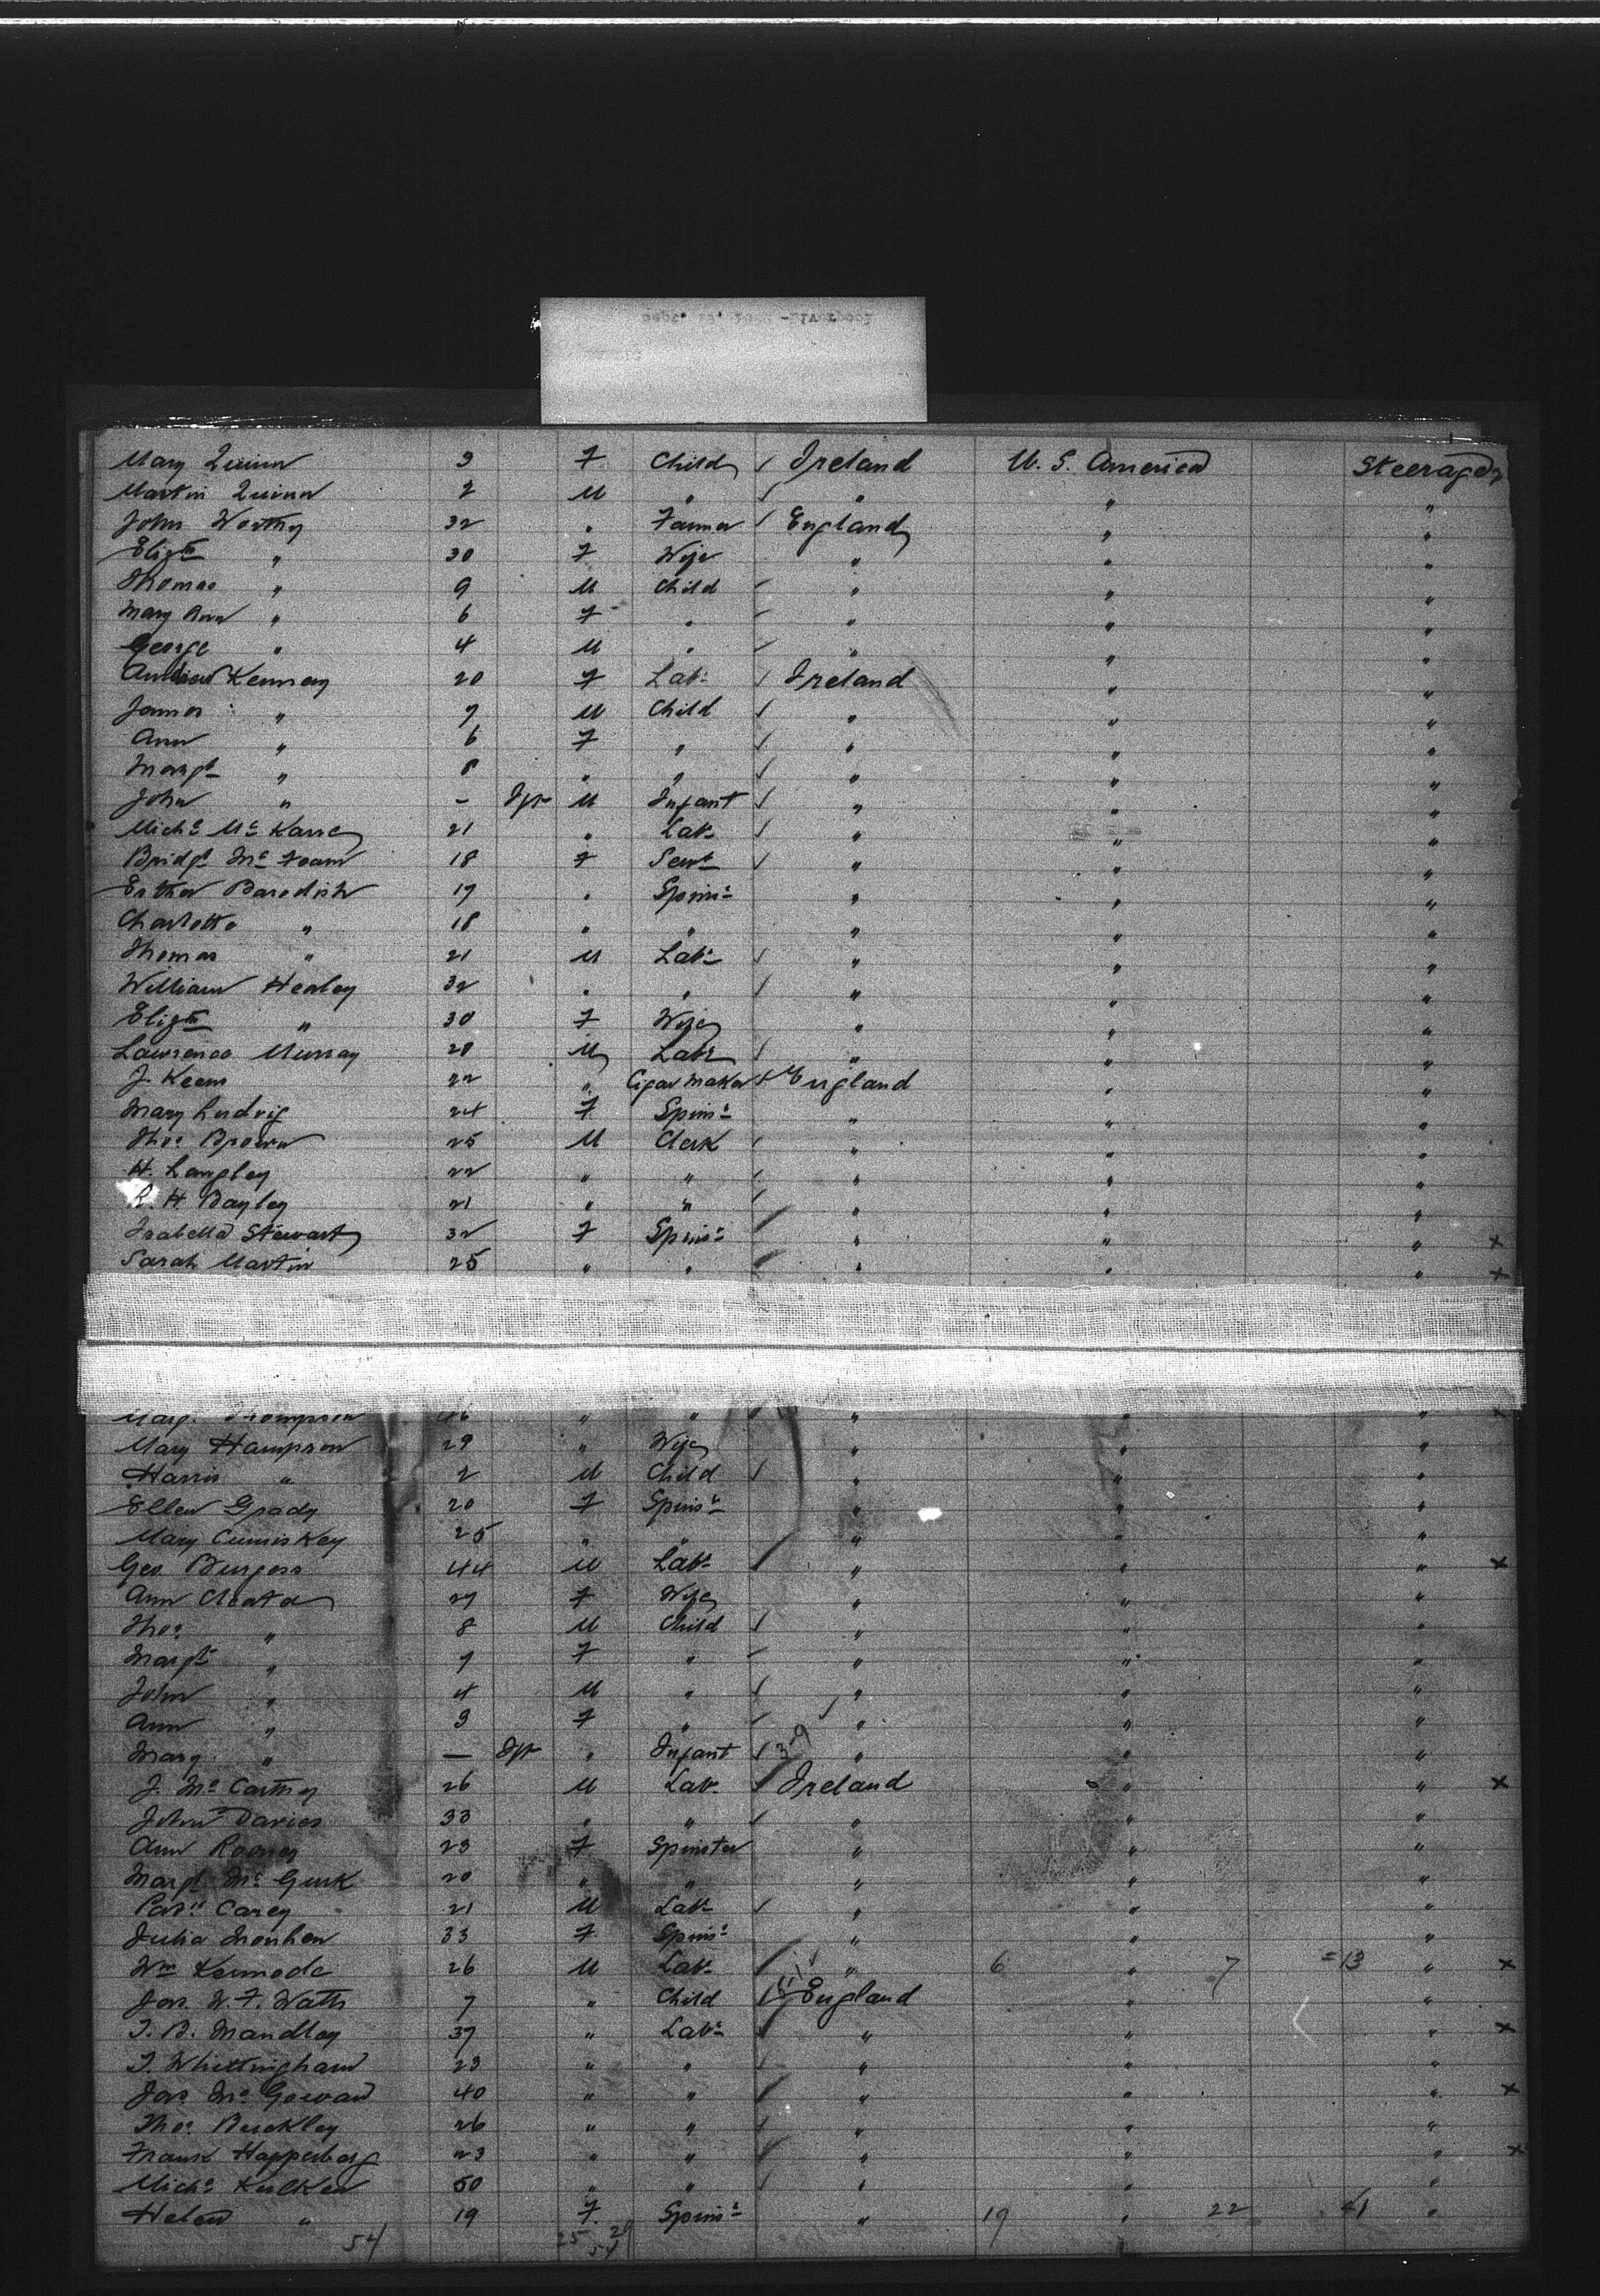 Mary Quinn 3 F Child ✓ Ireland U. S. America Steerage
Martin Quinn 2 M " ✓ " " "
John Worthy 32 " Farmer ✓ England " "
Elizth " 30 F Wife " " "
Thomas " 9 M Child ✓ " " "
Mary Ann " 6 F " ✓ " " "
George " 4 M " ✓ " " "
Kenney 20 F Labr ✓ Ireland " "
James " 7 M Child ✓ " " "
Ann " 6 F " ✓ " " "
Margt " 8 " " ✓ " " "
John " — Inft M Infant ✓ " " "
Michl Mc 21 " Labr ✓ " " "
Bridgt Mc 18 F Servt ✓ " " "
Esther 17 " Spinsr " " "
Charlotte " 18 " " " " "
Thomas " 21 M Labr ✓ " " "
William Healey 32 " " ✓ " " "
Elizth " 30 F Wife " " "
Lawrence Murray 28 M Labr ✓ " " "
J. Keem 22 " Cigar Maker ✓ England " "
Mary Ludvig 24 F Spinsr " " "
Thos Brown 25 M Clerk ✓ " " "
H. Langley 22 " " ✓ " " "
R. H. Bayley 21 " " ✓ " " "
Isabella Stewart 32 F Spinsr " " " x
Sarah Martin 25 " " " " " x
Margt Thompson " " " " "
Mary Hampson 29 " Wife " " "
Harris " 2 M Child ✓ " " "
Ellen Grady 20 F Spinsr " " "
Mary Cumiskey 25 " " " " "
Geo. Burgess 44 M Labr " " " x
Ann 27 F Wife " " "
Thos " 8 M Child ✓ " " "
Margt " 7 F " ✓ " " "
John " 4 M " ✓ " " "
Ann " 3 F " ✓ " " "
Mary " — Inft " Infant ✓ " " "
J. Mc Carthy 26 M Labr Ireland " " x
John Davies 33 " " ✓ " " "
Ann Rooney 23 F Spinster " " "
Margt Mc Gurk 20 " " " " "
Patk Carey 21 M Labr ✓ " " "
Julia Monhen 33 F Spinsr " " "
Wm Kermode 26 M Labr " 6 " 7 =13 " x
Jas. W. F. Watts 7 " Child England " "
T. B. Mandley 37 " Labr " " " x
T. Whittingham 23 " " ✓ " " "
Jas. Mc Gowan 40 " " " " " x
Thos Buckley 26 " " ✓ " " "
Frank Happerberg 23 " " " " " x
Michl 50 " " ✓ " " "
Helen " 19 F Spinsr " 19 " 22 41 "
54 25 29
54